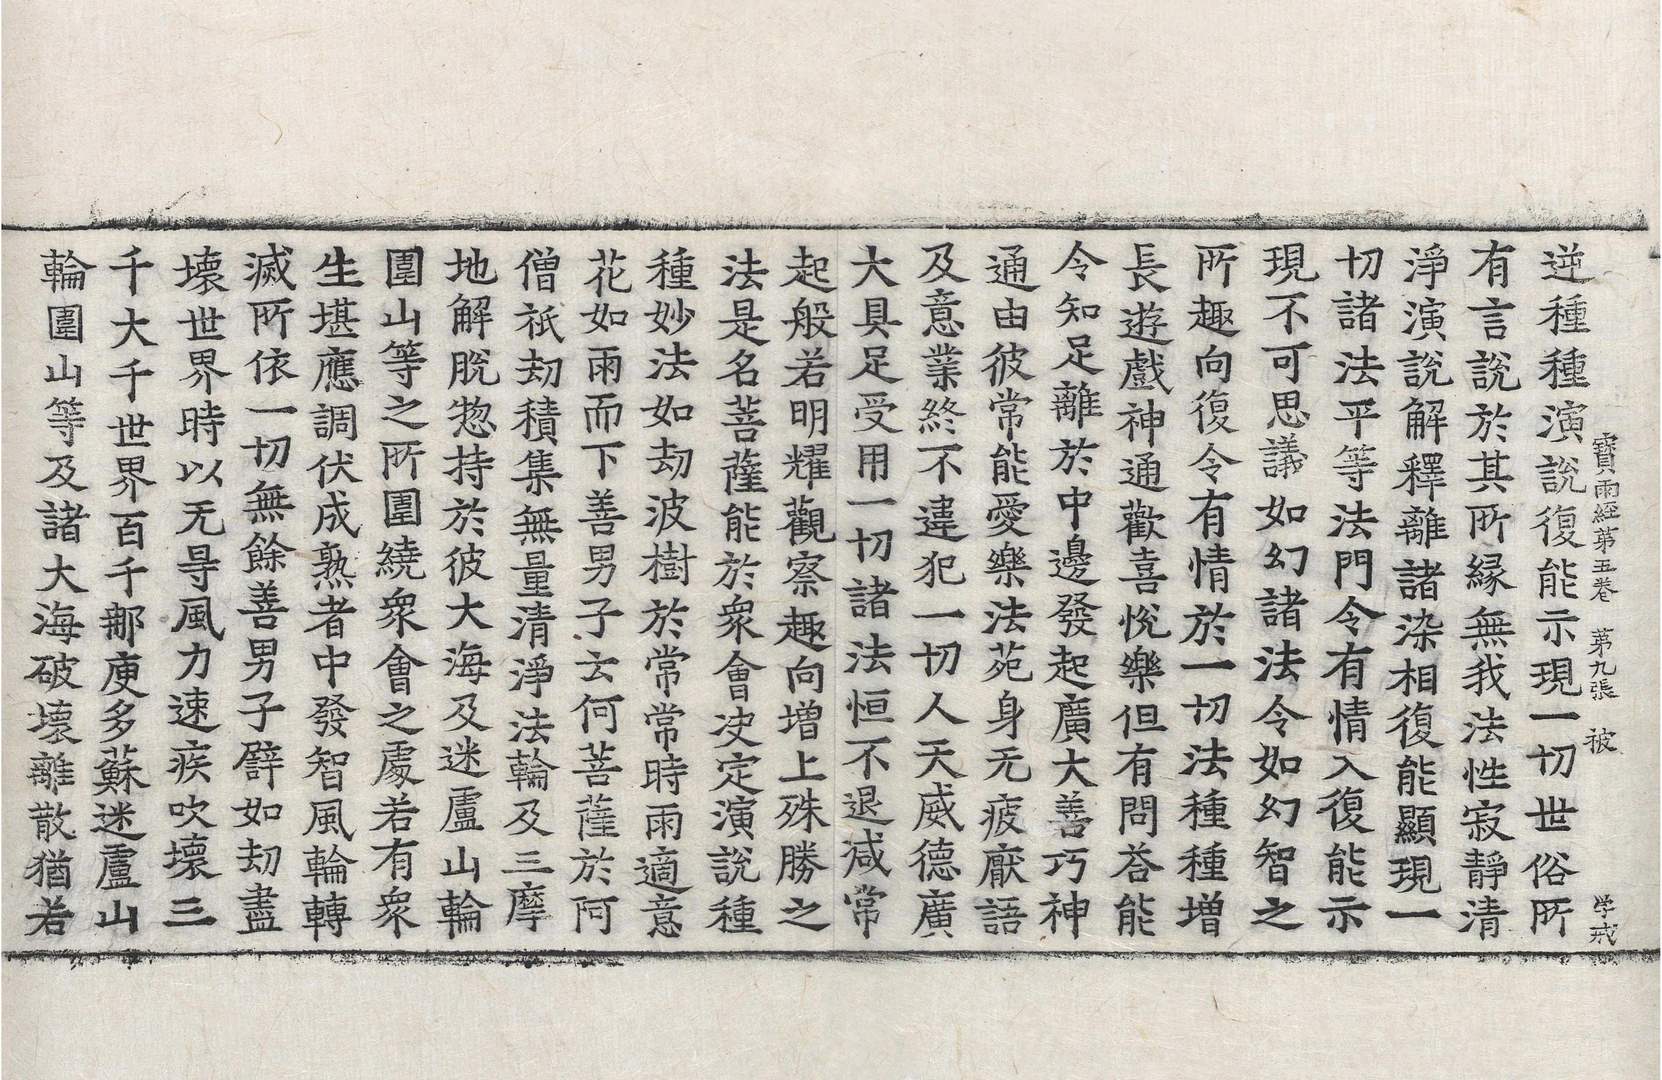 寶雨經第五卷　第九張　被　学戒
逆種種演說復能示現一切世俗所
有言說於其所緣無我法性寂靜清
淨演說解釋離諸染相復能顯現一
切諸法平等法門令有情入復能示
現不可思議如幻諸法令如幻智之
所趣向復令有情於一切法種種增
長遊戲神通歡喜悅樂但有問荅能
令知足離於中邊發起廣大善巧神
通由彼常能愛樂法苑身无疲厭語
及意業終不違犯一切人天威德廣
大具足受用一切諸法恒不退減常
起般若明耀觀察趣向增上殊勝之
法是名菩薩能於衆會决定演說種
種妙法如劫波樹於常常時雨適意
花如雨而下善男子云何菩薩於阿
僧祇劫積集無量清淨法輪及三摩
地解脫惣持於彼大海及迷盧山輪
圍山等之所圍繞衆會之處若有衆
生堪應調伏成熟者中發智風輪轉
滅所依一切無餘善男子譬如劫盡
壞世界時以无㝵風力速疾吹壞三
千大千世界百千那庾多蘇迷盧山
輪圍山等及諸大海破壞離散猶若